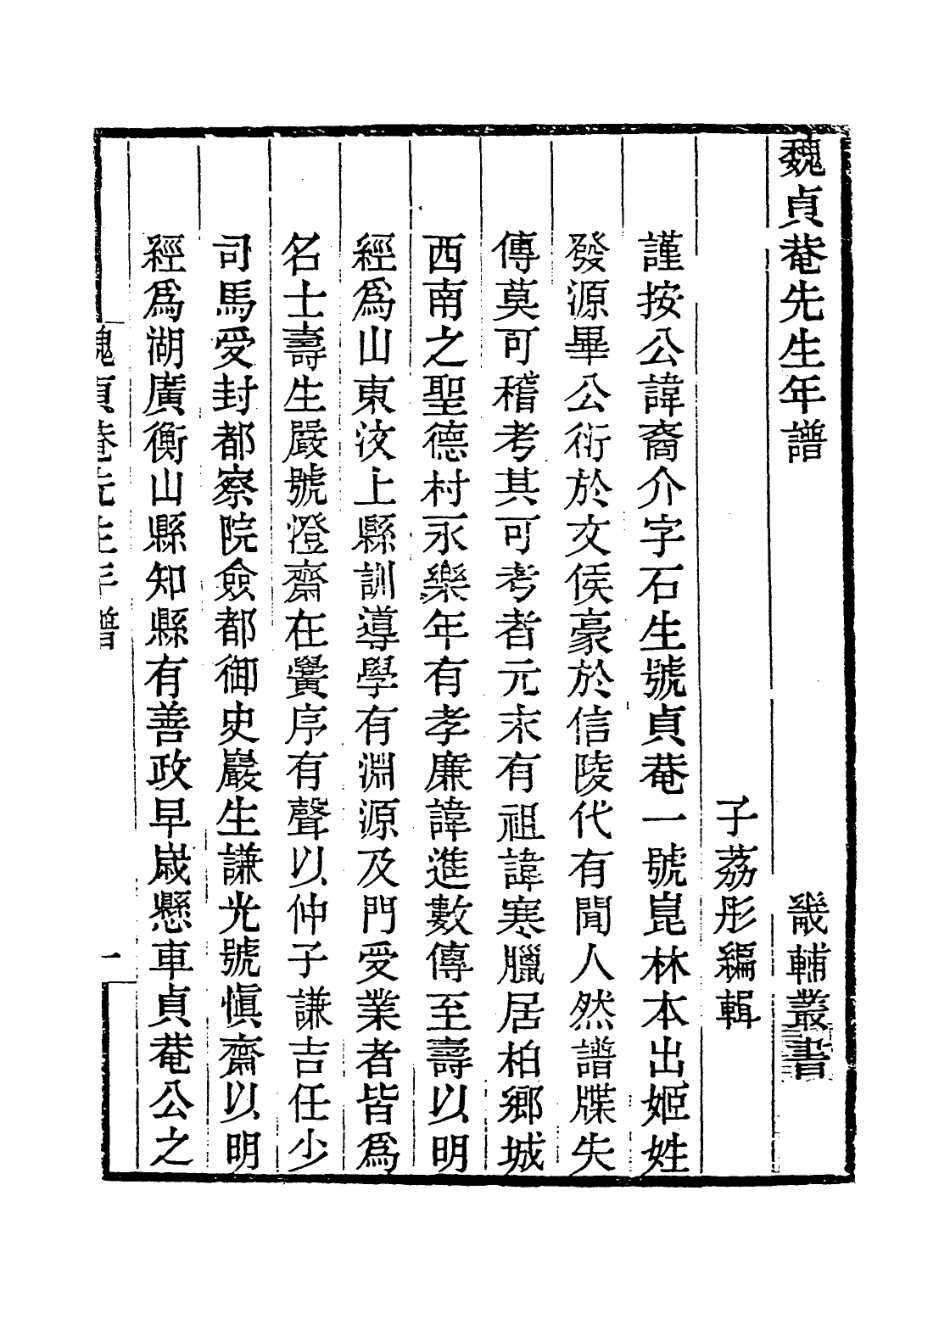 魏貞菴先生年譜　畿輔叢書
子荔彤編輯
謹按公諱裔介字石生號貞菴一號崑林本出姬姓
發源畢公衍於文侯豪於信陵代有聞人然譜牒失
傳莫可稽考其可考者元末有祖諱寒臘居柏鄉城
西南之聖德村永樂年有孝廉諱進數傳至壽以明
經爲山東汶上縣訓導學有淵源及門受業者皆爲
名士壽生嚴號澄齋在黌序有聲以仲子謙吉任少
司馬受封都察院僉都御史巖生謙光號愼齋以明
經爲湖廣衡山縣知縣有善政早歲懸車貞菴公之
魏貞菴先生年譜　一